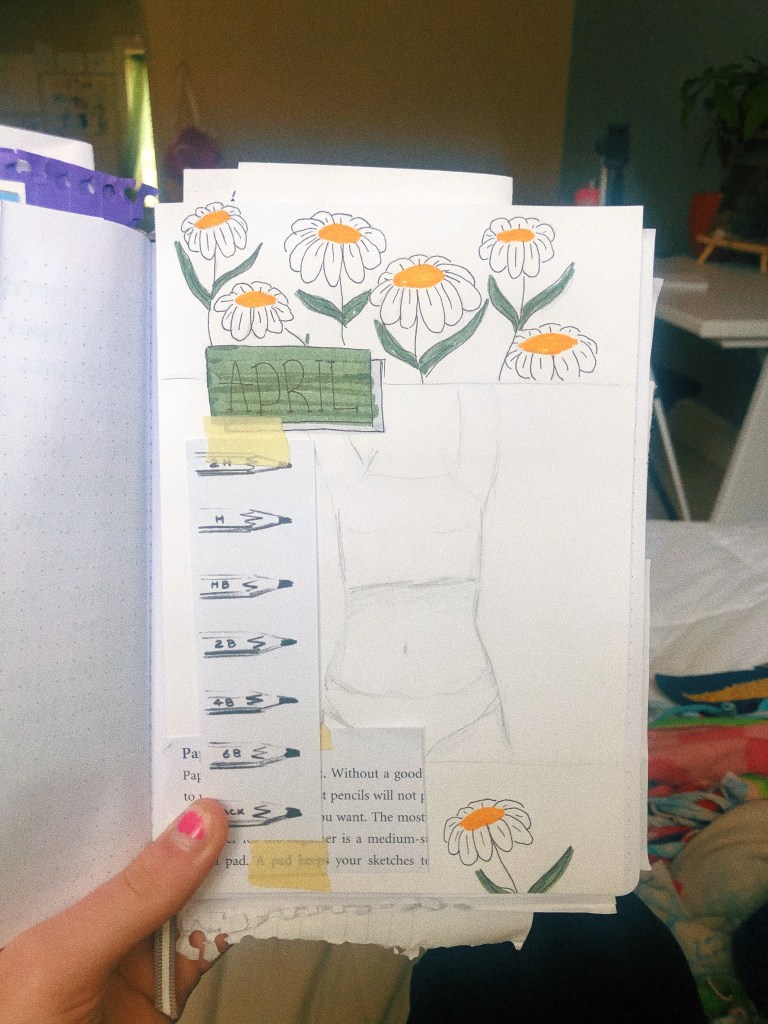 APRIL
2H
H
HB
2B
4B
6B
ACK
Pa
Pap . Without a good
to t pencils will not p
ou want. The most
er is a medium-s
pad. A pad keeps your sketches to